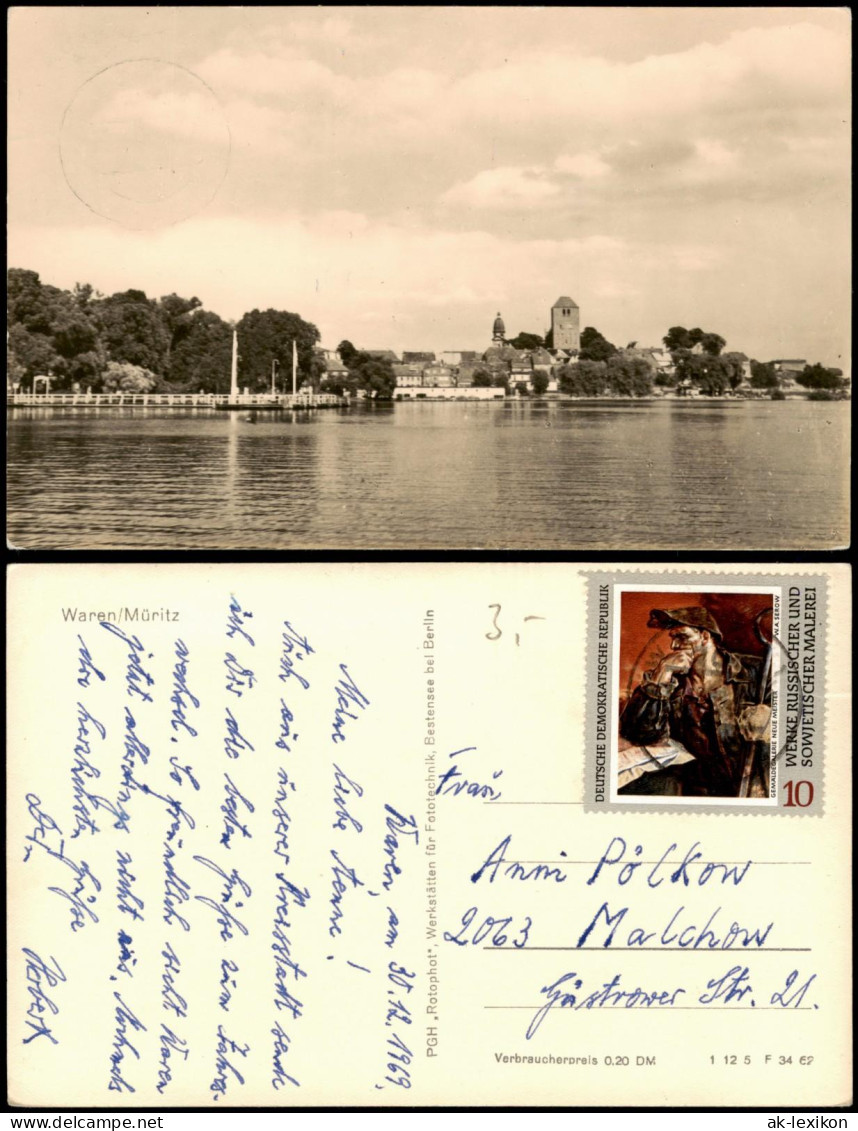 Waren/Müritz
Waren, am 30.12.1969,
Meine liebe Aenne!
Auch aus unserer Kreisstadt sende
ich Dir die besten Grüße zum Jahres-
wechsel. So freundlich sieht Waren
jetzt allerdings nicht aus. Nochmals
die herzlichsten Grüße
Dein
Herbert
PGH „Rotophot“, Werkstätten für Fototechnik, Bestensee bei Berlin
3,-
DEUTSCHE DEMOKRATISCHE REPUBLIK
GEMÄLDEGALERIE NEUE MEISTER W.A. SEROW
WERKE RUSSISCHER UND
SOWJETISCHER MALEREI
10
Frau
Anni Pölkow
2063 Malchow
Güstrower Str. 21.
Verbraucherpreis 0.20 DM 1 12 5 F 34 62
© www.ak-lexikon.de
ak-lexikon